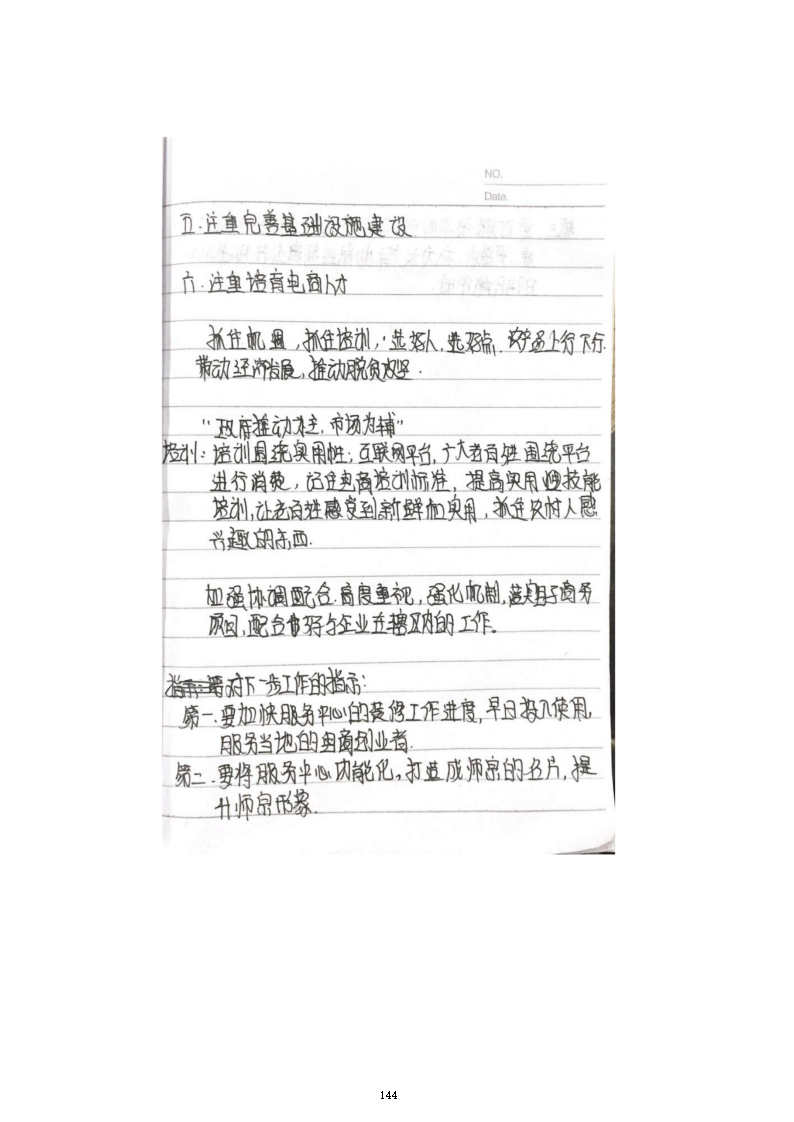 NO.
Date.
五.注重完善基础设施建设
六.注重培育电商人才
抓住机遇,抓住培训,选好人,选好点,农产品上行下行
带动经济发展,推动脱贫攻坚.
"政府推动为主,市场为辅"
培训:培训围绕实用性,互联网平台,广大老百姓围绕平台
进行消费,记住电商培训标准,提高实用性技能
培训,让老百姓感受到新鲜和实用,抓住农村人感
兴趣的东西.
加强协调配合.高度重视,强化机制,落实电子商务
项目,配合好与企业在辖区内的工作。
对下一步工作的指示:
第一.要加快服务中心的装修工作进度,早日投入使用,
服务当地的电商创业者.
第二.要将服务中心功能化,打造成师宗的名片,提
升师宗形象.
144